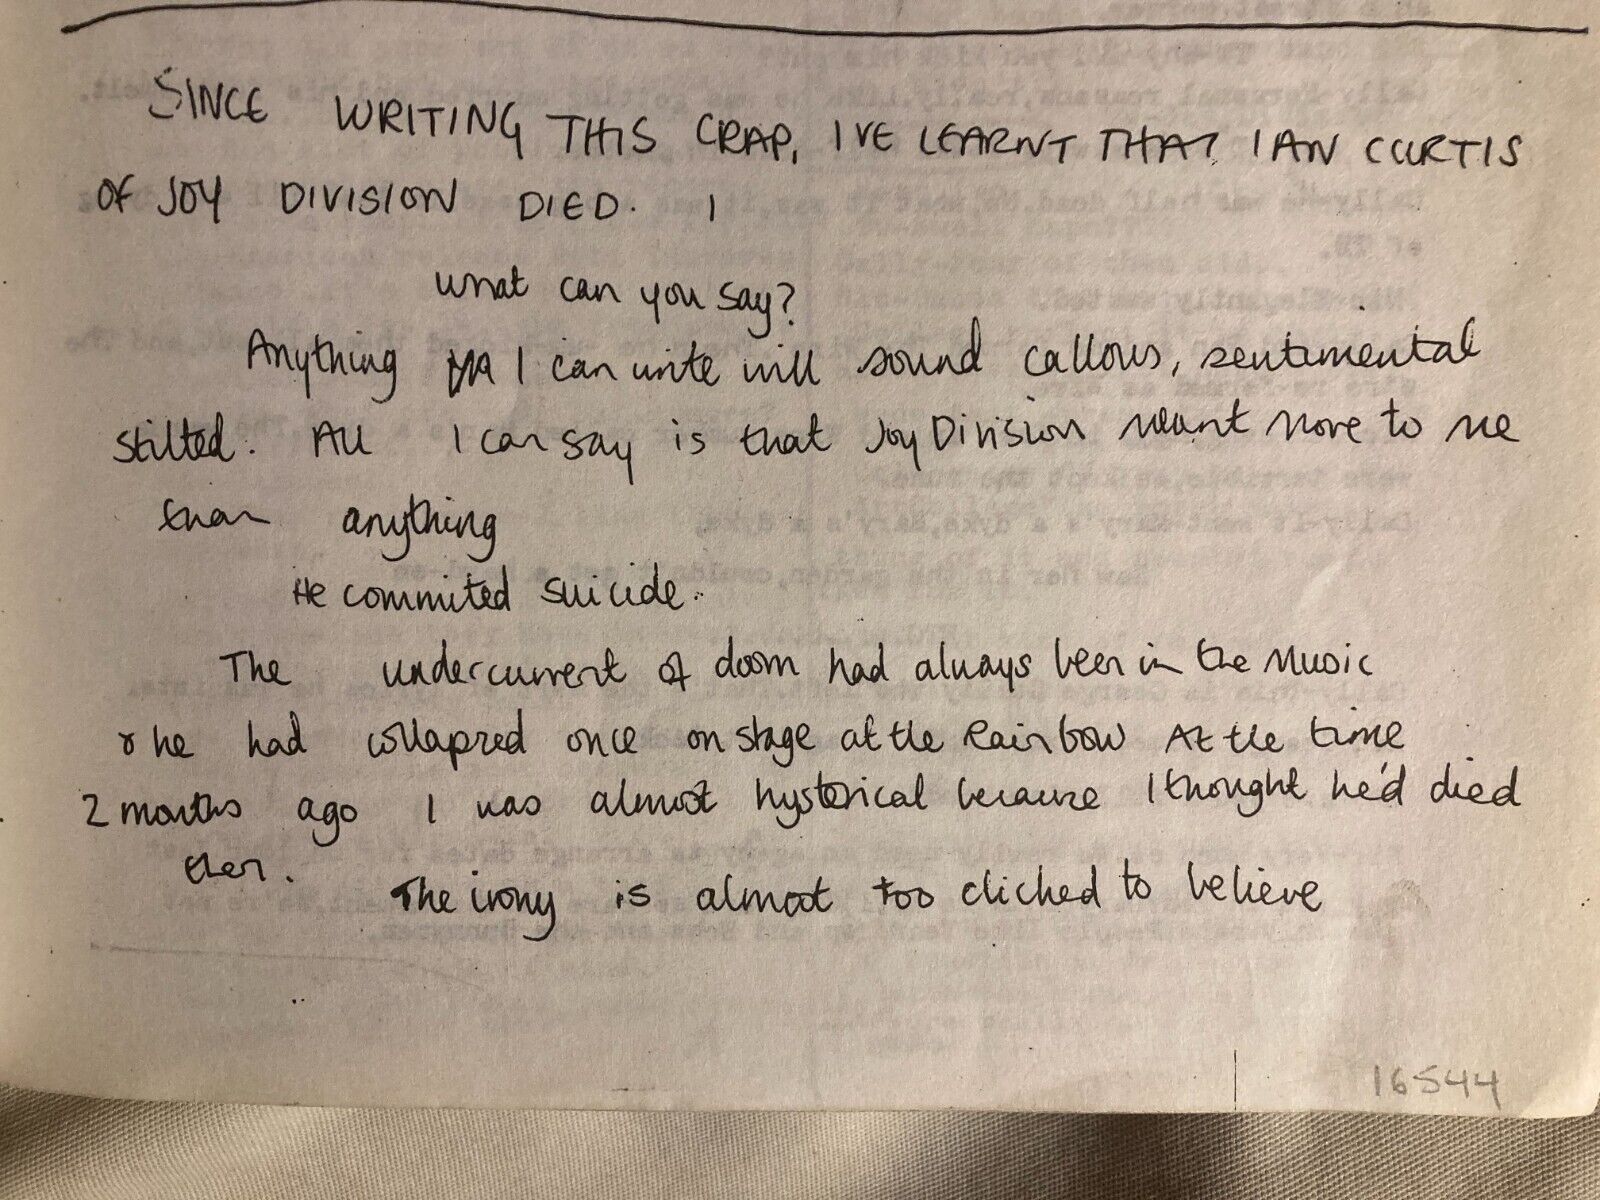 SINCE WRITING THIS CRAP, I'VE LEARNT THAT IAN CURTIS
OF JOY DIVISION DIED. I
what can you say?
Anything I can write will sound callous, sentimental
stilted. All I can say is that Joy Division meant more to me
than anything
He commited suicide.
The undercurrent of doom had always been in the music
& he had collapsed once on stage at the Rainbow At the time
2 months ago I was almost hysterical because I thought he'd died
then.
The irony is almost too cliched to believe
16544